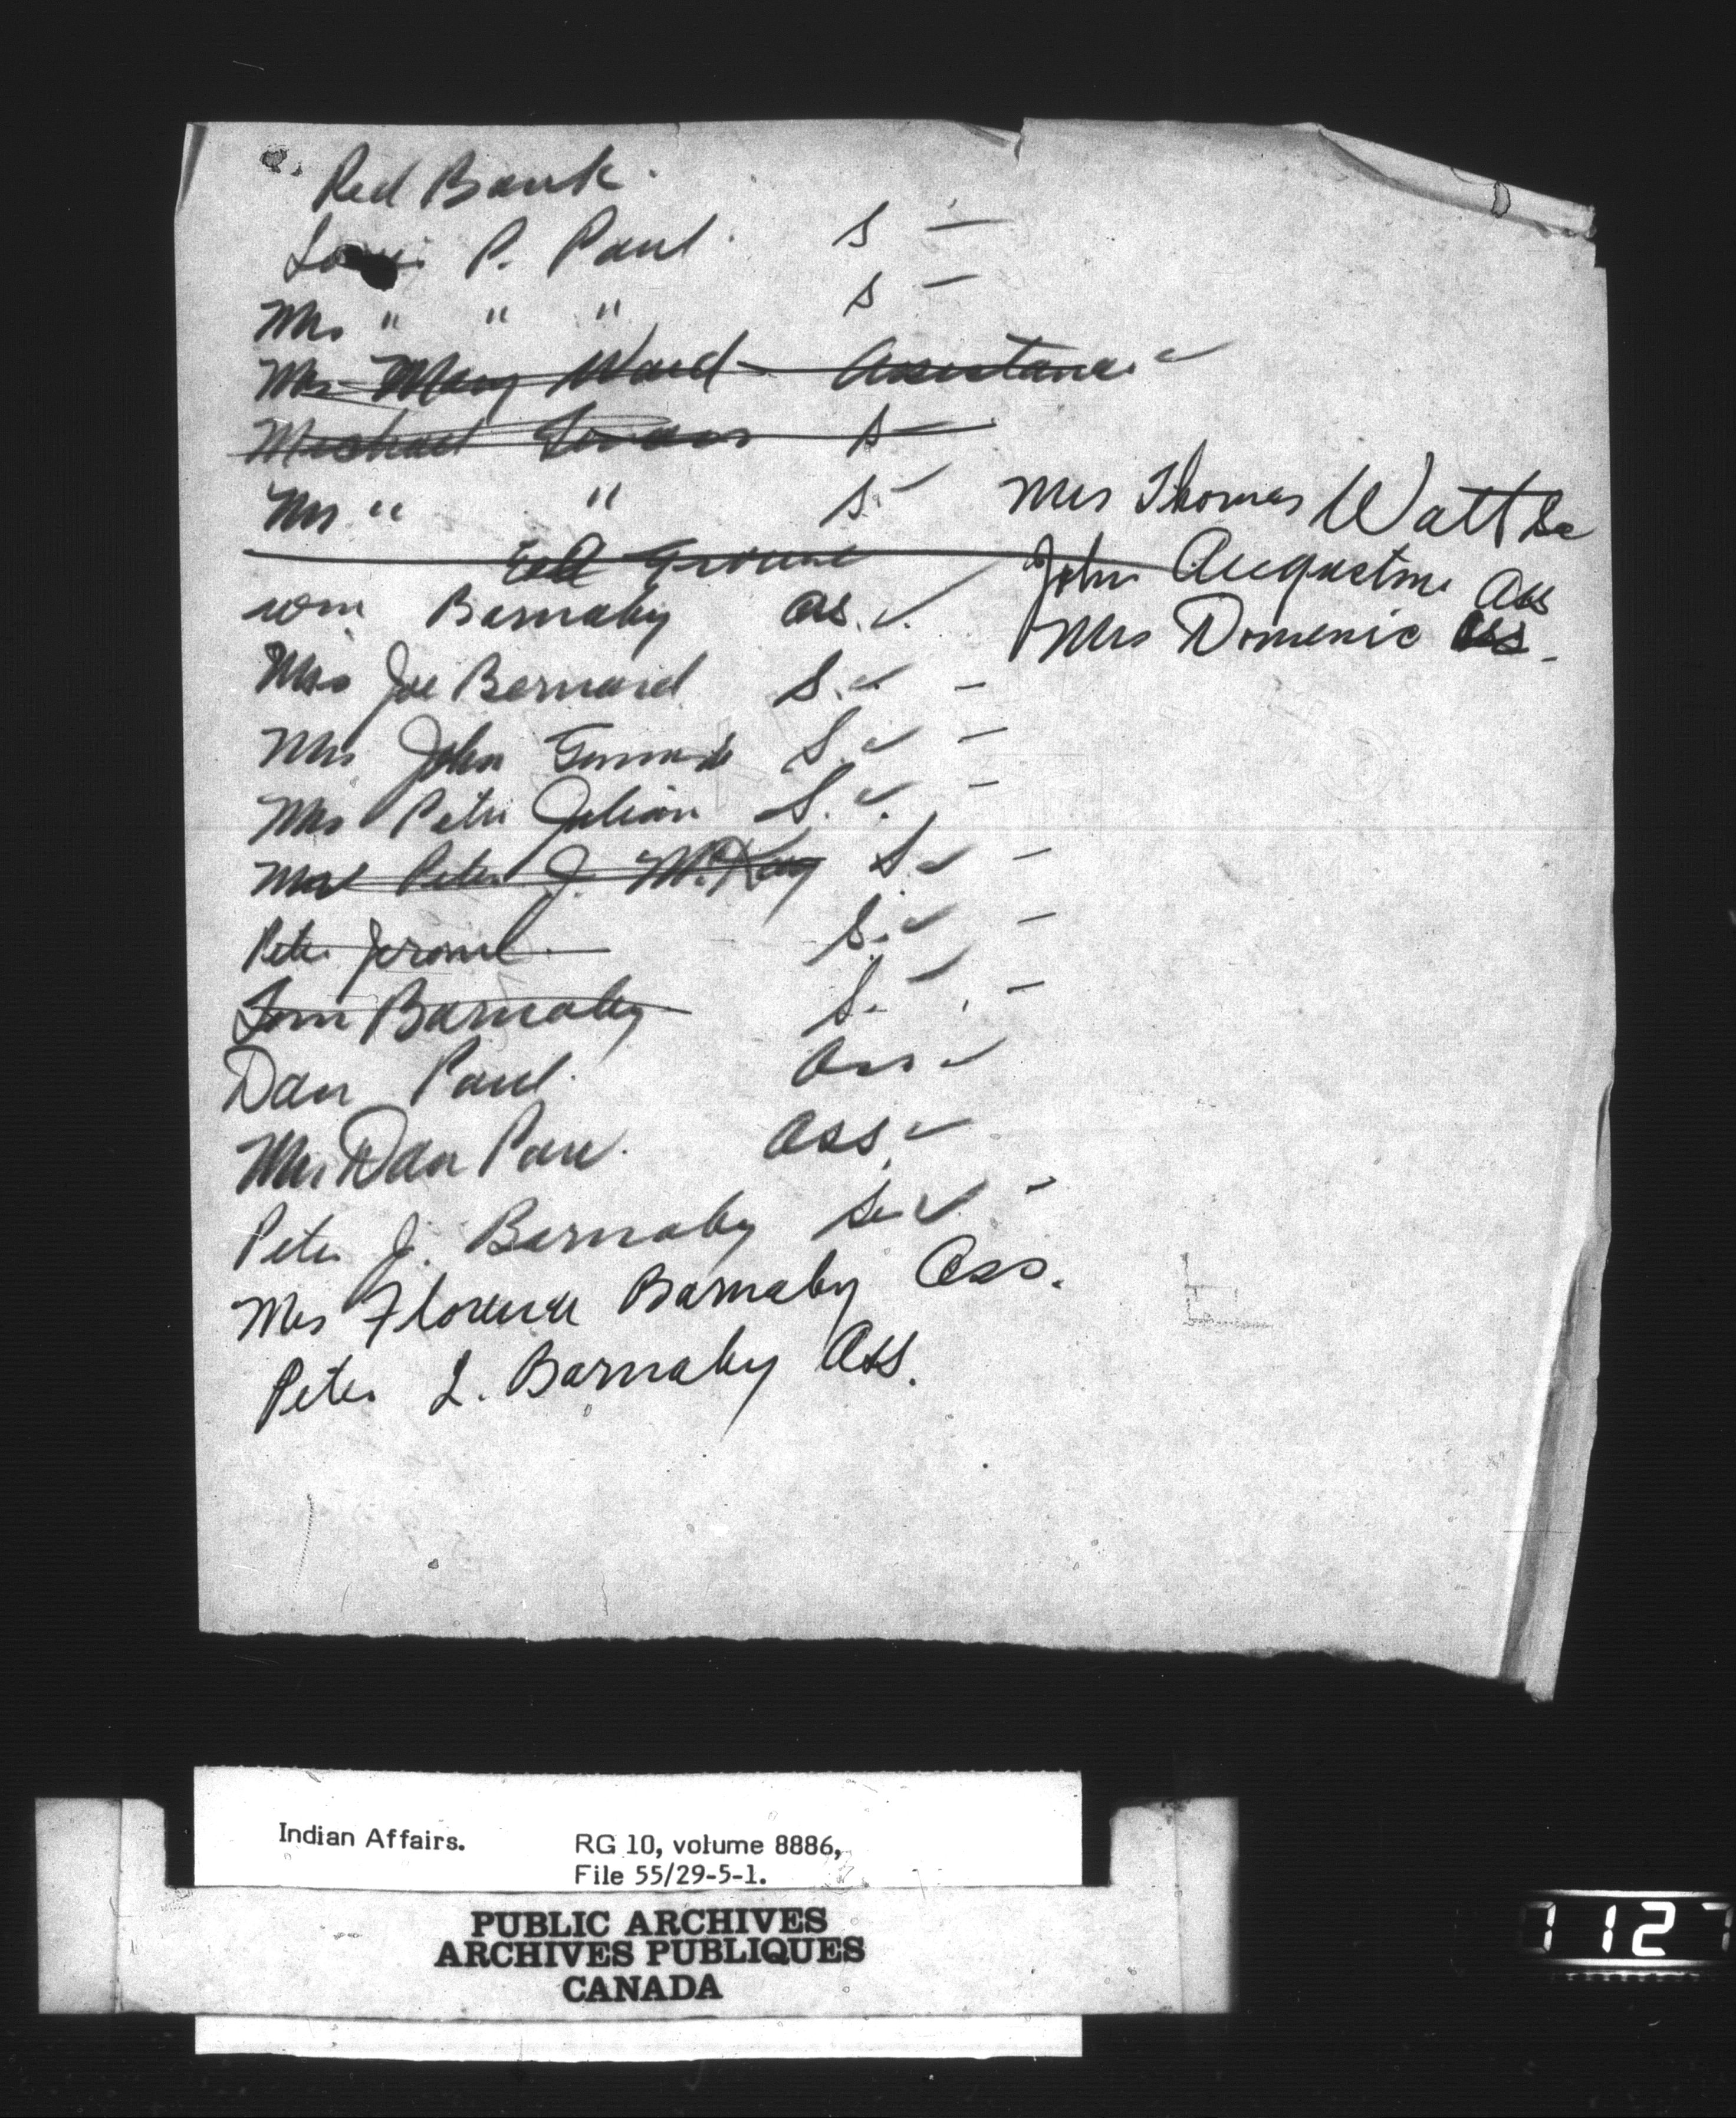 Red Bank.
Louis P. Paul. S –
Mrs " " " S –
Mrs Mary Ward – Assistance ✓
Michael S –
Mrs " " S. ✓
Eel Ground
Wm Barnaby as. ✓
Mrs Joe Bernard S. ✓ –
Mrs John S. ✓ –
Mrs Peter Julian S. ✓ –
Mrs Peter J. McKay S ✓ –
Peter Jerome S. ✓ –
Tom Barnaby S. ✓ –
Dan Paul. Ass ✓
Mrs Dan Paul. Ass ✓
Peter J. Barnaby Se ✓ –
Mrs Florence Barnaby Ass.
Peter L. Barnaby Ass.
Mrs Thomas Watt Se
John Augustine Ass
Mrs Domenic Ass.
Indian Affairs. RG 10, volume 8886,
File 55/29-5-1.
PUBLIC ARCHIVES
ARCHIVES PUBLIQUES
CANADA
7127